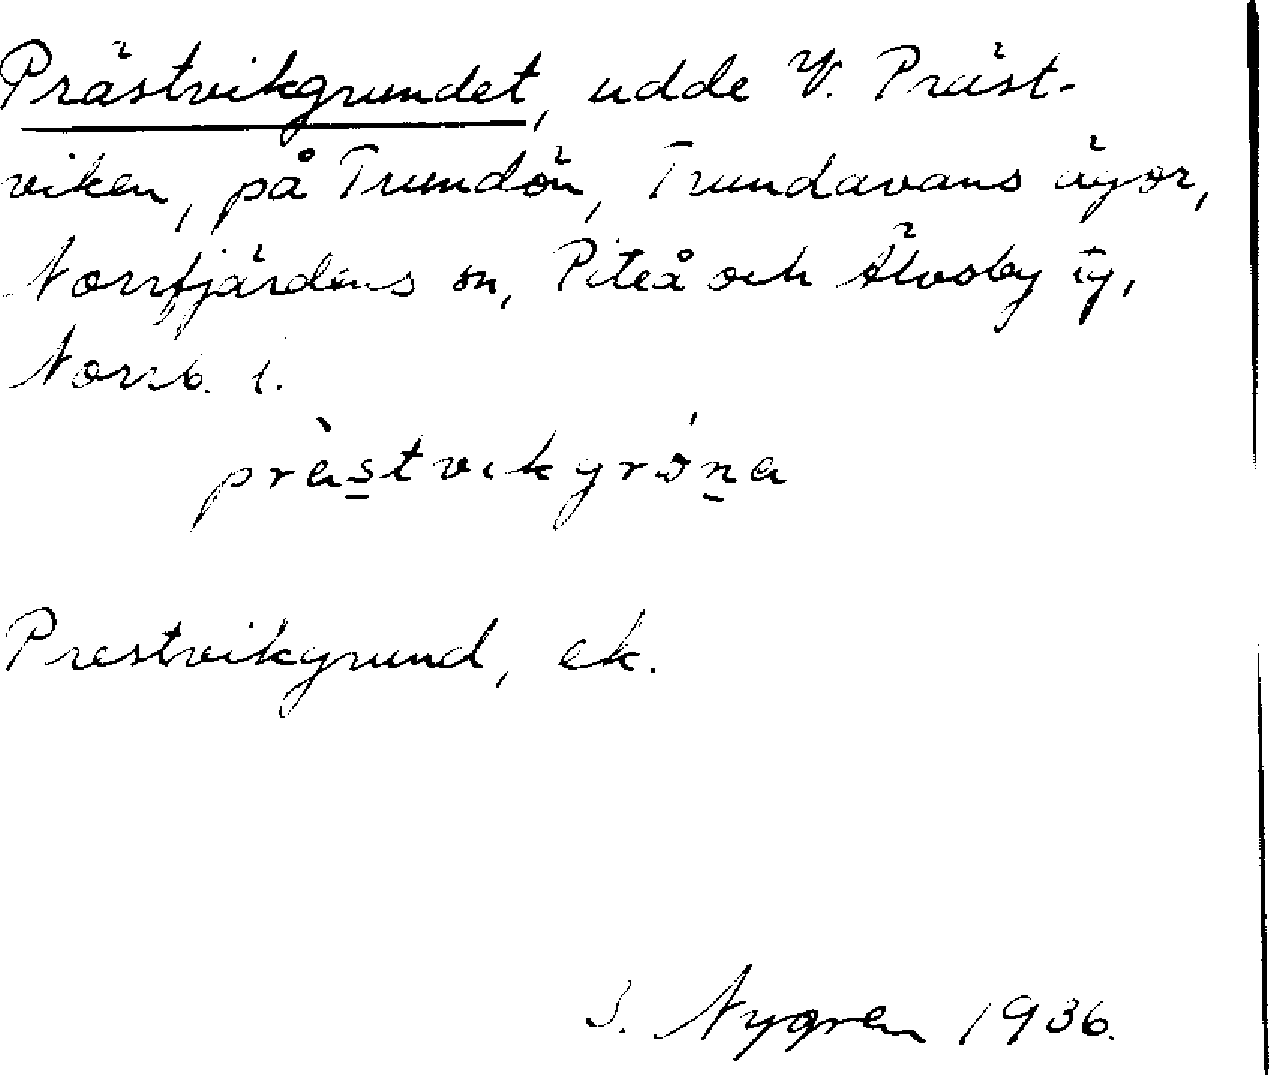 Prästvikgrundet, udde V. Präst-
viken, på Trundön, Trundavans ägor,
Norrfjärdens sn, Piteå och Älvsby tg,
Norrb. l.
prästvikgröna
Prestvikgrund, ek.
Nygren 1936.